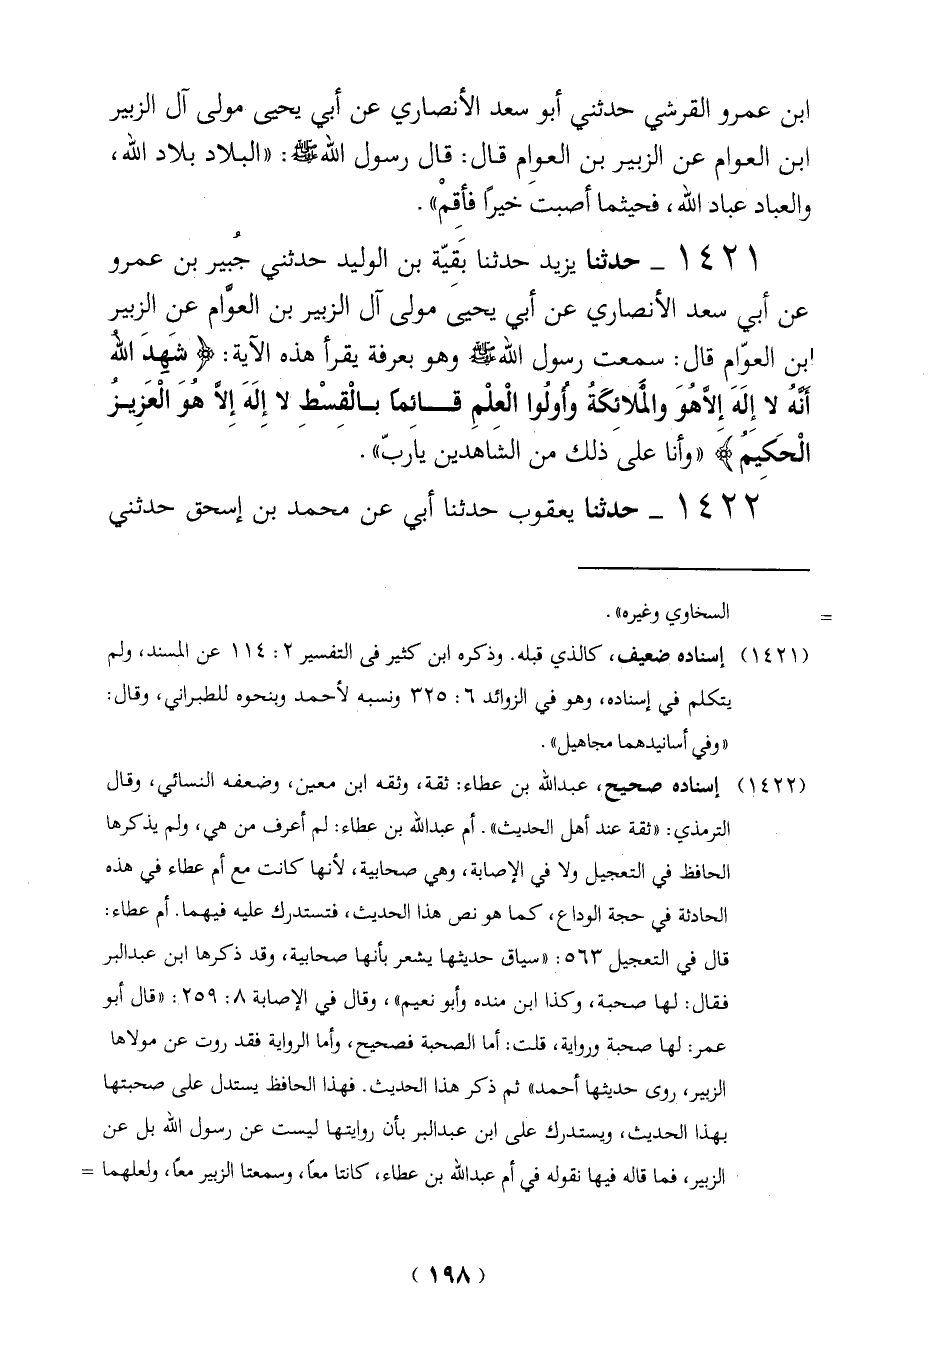 ابن عمرو القرشي حدثني أبو سعد الأنصاري عن أبي يحيى مولى آل الزبير
ابن العوام عن الزبير بن العوام قال: قال رسول الله ﷺ: «البلاد بلاد الله،
والعباد عباد الله، فحيثما أصبت خيراً فأقمْ».
١٤٢١ ـ حدثنا يزيد حدثنا بَقيّة بن الوليد حدثني جُبير بن عمرو
عن أبي سعد الأنصاري عن أبي يحيى مولى آل الزبير بن العوَّام عن الزبير
ابن العوّام قال: سمعت رسول الله ﷺ وهو بعرفة يقرأ هذه الآية: ﴿ شَهِدَ اللهُ
أَنَّهُ لا إِلَهَ إِلاَّ هُوَ وَالْمَلائِكَةُ وَأُولُوا الْعِلْمِ قَائِمًا بِالْقِسْطِ لا إِلَهَ إِلاَّ هُوَ الْعَزِيزُ
الْحَكِيمُ ﴾ «وأنا على ذلك من الشاهدين ياربّ».
١٤٢٢ ـ حدثنا يعقوب حدثنا أبي عن محمد بن إسحق حدثني
= السخاوي وغيره».
(١٤٢١) إسناده ضعيف، كالذي قبله. وذكره ابن كثير فى التفسير ٢: ١١٤ عن المسند، ولم
يتكلم في إسناده، وهو في الزوائد ٦: ٣٢٥ ونسبه لأحمد وبنحوه للطبراني، وقال:
«وفي أسانيدهما مجاهيل».
(١٤٢٢) إسناده صحيح، عبدالله بن عطاء: ثقة، وثقه ابن معين، وضعفه النسائي، وقال
الترمذي: «ثقة عند أهل الحديث». أم عبدالله بن عطاء: لم أعرف من هي، ولم يذكرها
الحافظ في التعجيل ولا في الإصابة، وهي صحابية، لأنها كانت مع أم عطاء في هذه
الحادثة في حجة الوداع، كما هو نص هذا الحديث، فتستدرك عليه فيهما. أم عطاء:
قال في التعجيل ٥٦٣: «سياق حديثها يشعر بأنها صحابية، وقد ذكرها ابن عبدالبر
فقال: لها صحبة، وكذا ابن منده وأبو نعيم»، وقال في الإصابة ٨: ٢٥٩: «قال أبو
عمر: لها صحبة ورواية، قلت: أما الصحبة فصحيح، وأما الرواية فقد روت عن مولاها
الزبير، روى حديثها أحمد» ثم ذكر هذا الحديث. فهذا الحافظ يستدل على صحبتها
بهذا الحديث، ويستدرك على ابن عبدالبر بأن روايتها ليست عن رسول الله بل عن
الزبير، فما قاله فيها نقوله في أم عبدالله بن عطاء، كانتا معاً، وسمعتا الزبير معاً، ولعلهما =
(١٩٨)